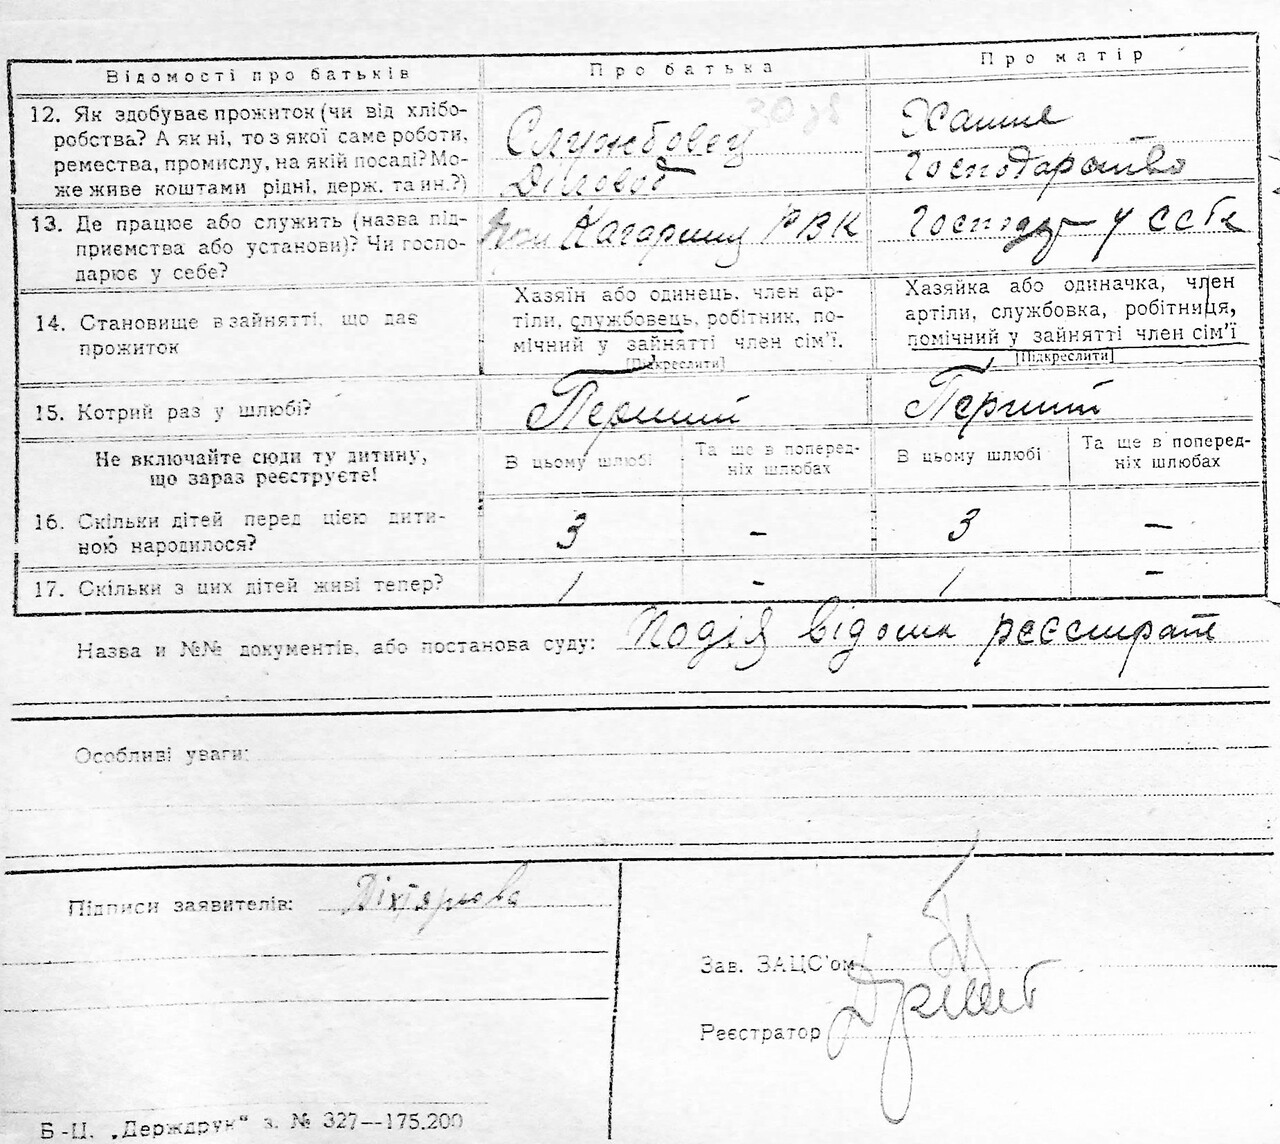 Відомості про батьків
Про батька
Про матір
12. Як здобуває прожиток (чи від хлібо-
робства? А як ні, то з якої саме роботи,
ремества, промислу, на якій посаді? Мо-
же живе коштами рідні, держ. та ин.?)
Службовец
Діловод
Хатне
Господарство
13. Де працює або служить (назва під-
приємства або установи)? Чи госпо-
дарює у себе?
При Кагарлиц РВК
Господ у себе
14. Становище в зайнятті, що дає
прожиток
Хазяїн або одинець, член ар-
тіли, службовець, робітник, по-
мічний у зайнятті член сім'ї.
[Підкреслити]
Хазяйка або одиначка, член
артіли, службовка, робітниця,
помічний у зайнятті член сім'ї
[Підкреслити]
15. Котрий раз у шлюбі?
Перший
Перший
Не включайте сюди ту дитину,
що зараз реєструєте!
В цьому шлюбі
Та ще в поперед-
ніх шлюбах
В цьому шлюбі
Та ще в поперед-
ніх шлюбах
16. Скільки дітей перед цією дити-
ною народилося?
3
-
3
-
17. Скільки з цих дітей живі тепер?
1
-
1
-
Назва и №№ документів, або постанова суду: Подія відома реєстрат
Особливі уваги:
Підписи заявителів:
Зав. ЗАЦС'ом
Реєстратор
Б-Ц. „Держдрук" з. № 327—175.200